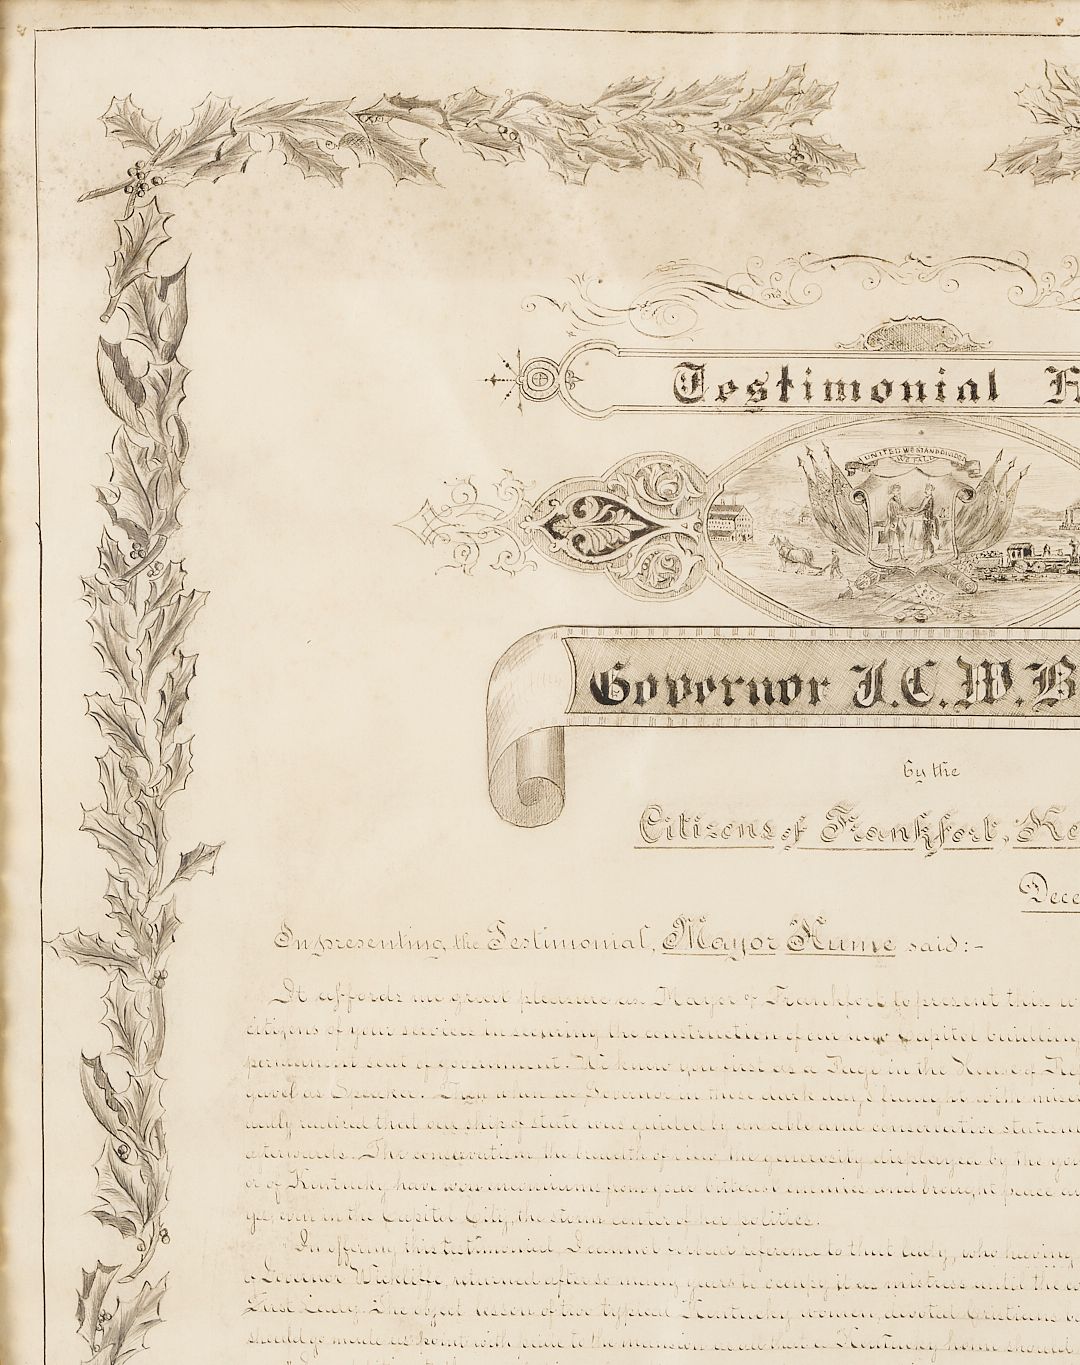 Testimonial
UNITED WE STAND DIVIDED
WE FALL
Governor J.C.W. B
by the
Citizens of Frankfort, Ke
Dece
In presenting the Testimonial, Mayor Hume said:-
It affords me great pleasure as Mayor of Frankfort to present this
citizens of your services in securing the construction of our new Capitol building
permanent seat of government. We knew you first as a Page in the House of Re
gavel as Speaker. Then when as Governor in those dark days brought with
realized that our ship of state was guided by an able and conservative states
afterwards. The conservatism, the breadth of view, the generosity displayed by the
or of Kentucky have won encomiums from your bitterest enemies and brought peace
yes, even in the Capitol City, the storm center of her politics.
In offering this testimonial, I cannot forbear reference to that lady, who
Governor Wickliffe, returned after so many years to occupy it as mistress until the
First Lady. The object lesson of two typical Kentucky women, devoted Christians
should go made us point with pride to the mansion as